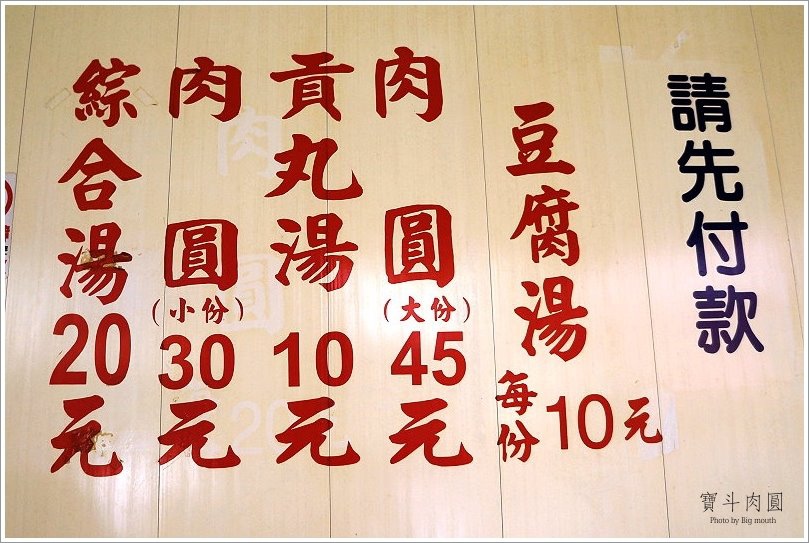 請先付款
豆腐湯
每份10元
肉圓
(大份)
45
元
貢丸湯
10
元
肉圓
(小份)
30
元
綜合湯
20
元
寶斗肉圓
Photo by Big mouth